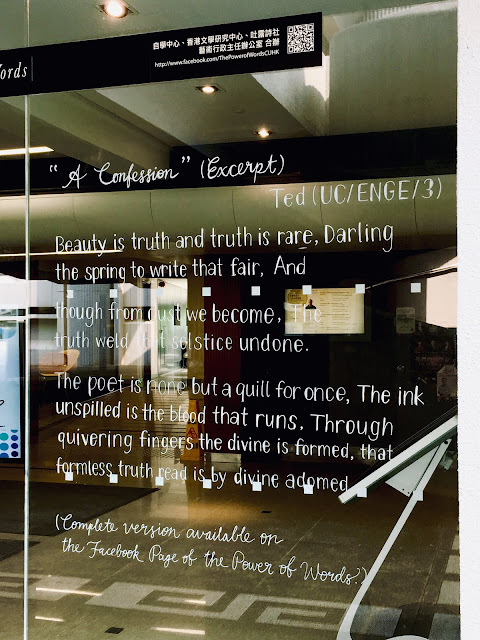 ords
自學中心、香港文學研究中心、吐露詩社
藝術行政主任辦公室 合辦
http://www.facebook.com/ThePowerofWordsCUHK
"A Confession" (Excerpt)
Ted (UC/ENGE/3)
Beauty is truth and truth is rare, Darling
the spring to write that fair, And
though from dust we become, The
truth weld that solstice undone.
The poet is none but a quill for once, The ink
unspilled is the blood that runs. Through
quivering fingers the divine is formed, that
formless truth read is by divine adorned.
(Complete version available on
the Facebook Page of the Power of Words!)